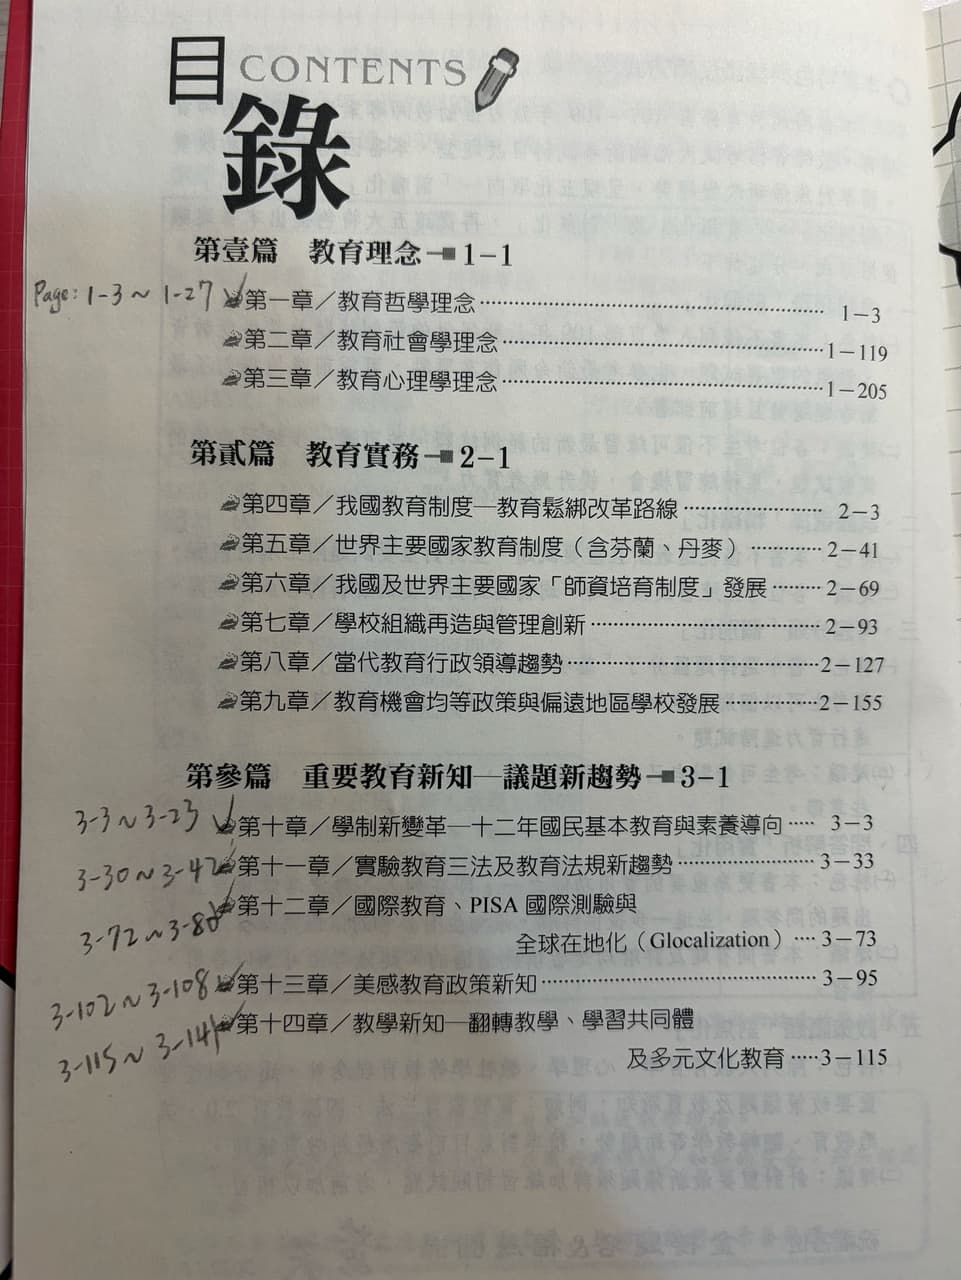 目 CONTENTS
錄
第壹篇 教育理念 1-1
Page: 1-3 ~ 1-27 第一章／教育哲學理念 1－3
第二章／教育社會學理念 1－119
第三章／教育心理學理念 1－205
第貳篇 教育實務 2-1
第四章／我國教育制度—教育鬆綁改革路線 2－3
第五章／世界主要國家教育制度（含芬蘭、丹麥） 2－41
第六章／我國及世界主要國家「師資培育制度」發展 2－69
第七章／學校組織再造與管理創新 2－93
第八章／當代教育行政領導趨勢 2－127
第九章／教育機會均等政策與偏遠地區學校發展 2－155
第參篇 重要教育新知—議題新趨勢 3-1
3-3 ~ 3-23 第十章／學制新變革—十二年國民基本教育與素養導向 3－3
3-30 ~ 3-42 第十一章／實驗教育三法及教育法規新趨勢 3－33
3-72 ~ 第十二章／國際教育、PISA 國際測驗與
全球在地化（Glocalization） 3－73
3-102 ~ 3-108 第十三章／美感教育政策新知 3－95
3-115 ~ 3-141 第十四章／教學新知—翻轉教學、學習共同體
及多元文化教育 3－115